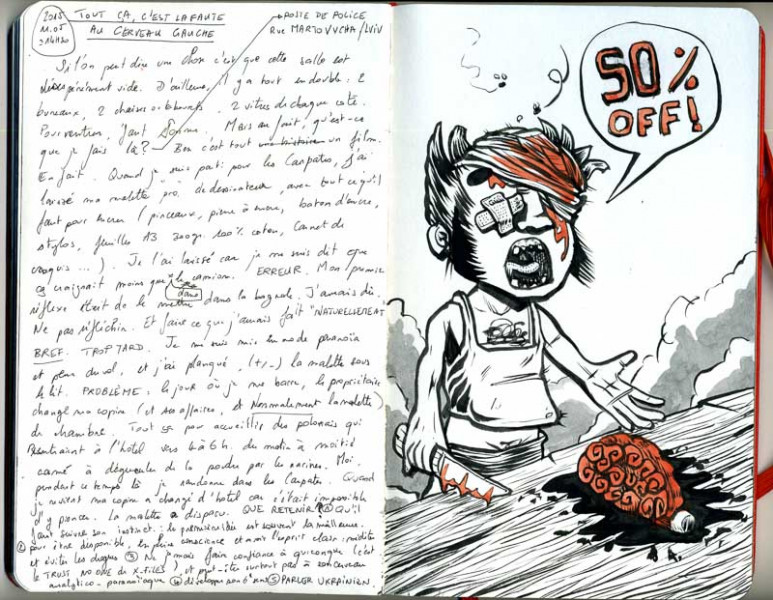 2015
11.05
±14h30
TOUT ÇA, C'EST LA FAUTE
AU CERVEAU GAUCHE
POSTE DE POLICE
Rue MARTOVYCHA / LVIV
Si l'on peut dire une chose c'est que cette salle est
désespérément vide. D'ailleurs, il y a tout en double : 2
bureaux, 2 chaises 2 vitres de chaque côté.
Mais au fait, qu'est-ce
que je fais là ? Bon c'est tout un film.
En fait. Quand je suis parti pour les Carpates, j'ai
laissé ma malette pro. de dessinateur, avec tout ce qu'il
faut pour encrer (pinceaux, pierre à encre, baton d'encre,
stylos, feuilles A3 300gr. 100% coton, carnet de
croquis ...). Je l'ai laissé car je me suis dit que
ça craignait moins que dans le camion. ERREUR. Mon premier
réflexe était de le mettre dans la bagnole. J'aurais dû
Ne pas réfléchir. Et faire ce que j'aurais fait "NATURELLEMENT"
BREF. TROP TARD. Je me suis mis en mode paranoïa
et plan du vol, et j'ai planqué (+/-) la malette sous
le lit. PROBLÈME : le jour où je me barre, le propriétaire
change ma copine (et ses affaires, et Normalement la malette)
de chambre. Tout ça pour accueillir des polonais qui
à l'hôtel vers 4 à 6h. du matin à moitié
camé à dégueuler de la poudre par les narines. Moi,
pendant ce temps là je randonne dans les Carpates. Quand
je revient ma copine a changé d'hôtel car c'était impossible
d'y pioncer. La malette a disparu. QUE RETENIR ? ① Qu'il
faut suivre son instinct : la première idée est souvent la meilleure.
② pour être disponible, en pleine conscience et avoir l'esprit clair : méditer
et éviter les drogues ③ Ne jamais faire confiance à quiconque (c'est
le TRUST NO ONE de X-FILES), et peut-être surtout pas à son cerveau
analytico-paranoïaque ④ ⑤ PARLER UKRAINIEN.
50%
OFF!